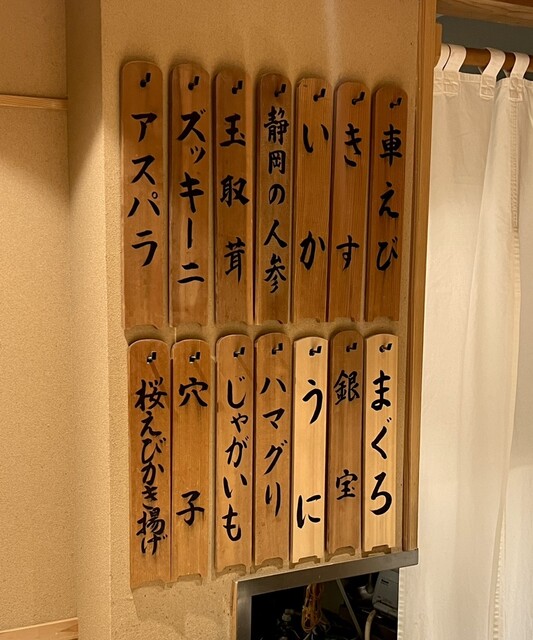 車えび
きす
いか
静岡の人参
玉取茸
ズッキーニ
アスパラ
まぐろ
銀宝
うに
ハマグリ
じゃがいも
穴子
桜えびかき揚げ